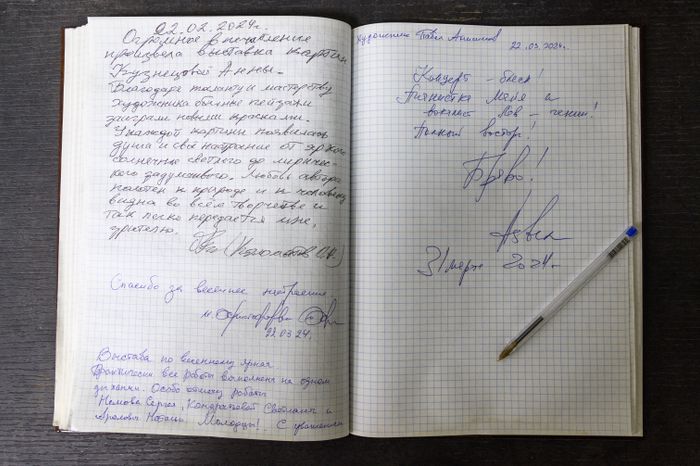 22.02.2024г.
Огромное впечатление
произвела выставка картин
Кузнецовой Анны.
Благодаря таланту и мастерству
художника обычные пейзажи
заиграли новыми красками.
У каждой картины появилась
душа и своё настроение от яркого
солнечно светлого до лиричес-
кого задумчивого. Любовь автора
полотен к природе и к человеку
видна во всём творчестве и
так легко передаётся мне,
зрителю.
Спасибо за весеннее настроение
22.03.24г.
Выставка по весеннему яркая.
Практически все работы выполнены на одном
дыхании. Особо отмечу работы
Немова Сергея, Кондратьевой Светланы и
Наташи. Молодцы! С уважением
Художник Павел Анисимов
22.03.2024г.
Концерт - блеск!
Пианистка Майя и
вокалист Лев - гении!
Полный восторг!
Браво!
31 марта 2024г.